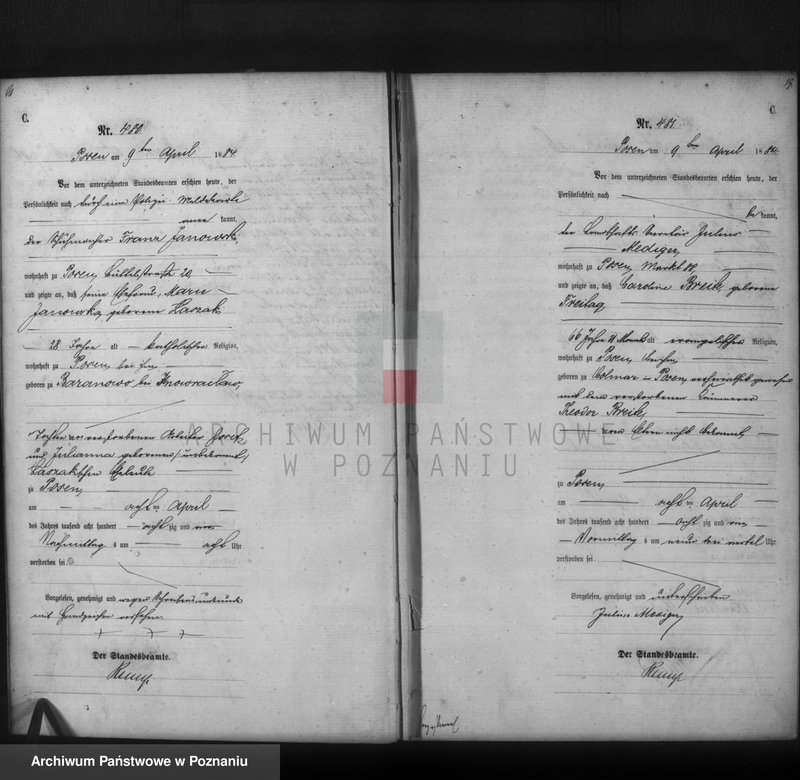 C.
Nr. 480.
Posen am 9ten April 1884
Vor dem unterzeichneten Standesbeamten erschien heute, der
Persönlichkeit nach durch eine Polizei Meldekarte
aner kannt,
der Schuhmacher Franz Janowski,
wohnhaft zu Posen,
und zeigte an, daß seine Ehefrau, Maria
Janowska, geborene Laszak,
28 Jahre alt katholischer Religion,
wohnhaft zu Posen bei ihm
geboren zu Baranowo bei Inowraclaw,
Tochter der verstorbenen Arbeiter
und Julianna geborenen (unbekannt)
Laszakschen Eheleute
zu Posen,
am acht ten April
des Jahres tausend acht hundert achtzig und vier
Nachmittag s um acht Uhr
verstorben sei.
Vorgelesen, genehmigt und wegen Schreibensunkunde
mit Handzeichen versehen.
+ + +
Der Standesbeamte.
C.
Nr. 481
Posen am 9ten April 1884.
Vor dem unterzeichneten Standesbeamten erschien heute, der
Persönlichkeit nach
be kannt,
der Landschafts Secretair Julius
Mediger,
wohnhaft zu Posen, Markt 88,
und zeigte an, daß Caroline Breik, geborene
Freitag
66 Jahre 4 Monate alt evangelischer Religion,
wohnhaft zu Posen,
geboren zu Colmar in Posen, verheirathet gewesen
mit dem verstorbenen Kämmerer
Theodor Breik,
Eltern nicht bekannt,
zu Posen,
am acht ten April
des Jahres tausend acht hundert achtzig und vier
Vormittag s um neun drei viertel Uhr
verstorben sei.
Vorgelesen, genehmigt und unterschrieben
Julius Mediger
Der Standesbeamte.
ARCHIWUM PAŃSTWOWE
W POZNANIU
Archiwum Państwowe w Poznaniu